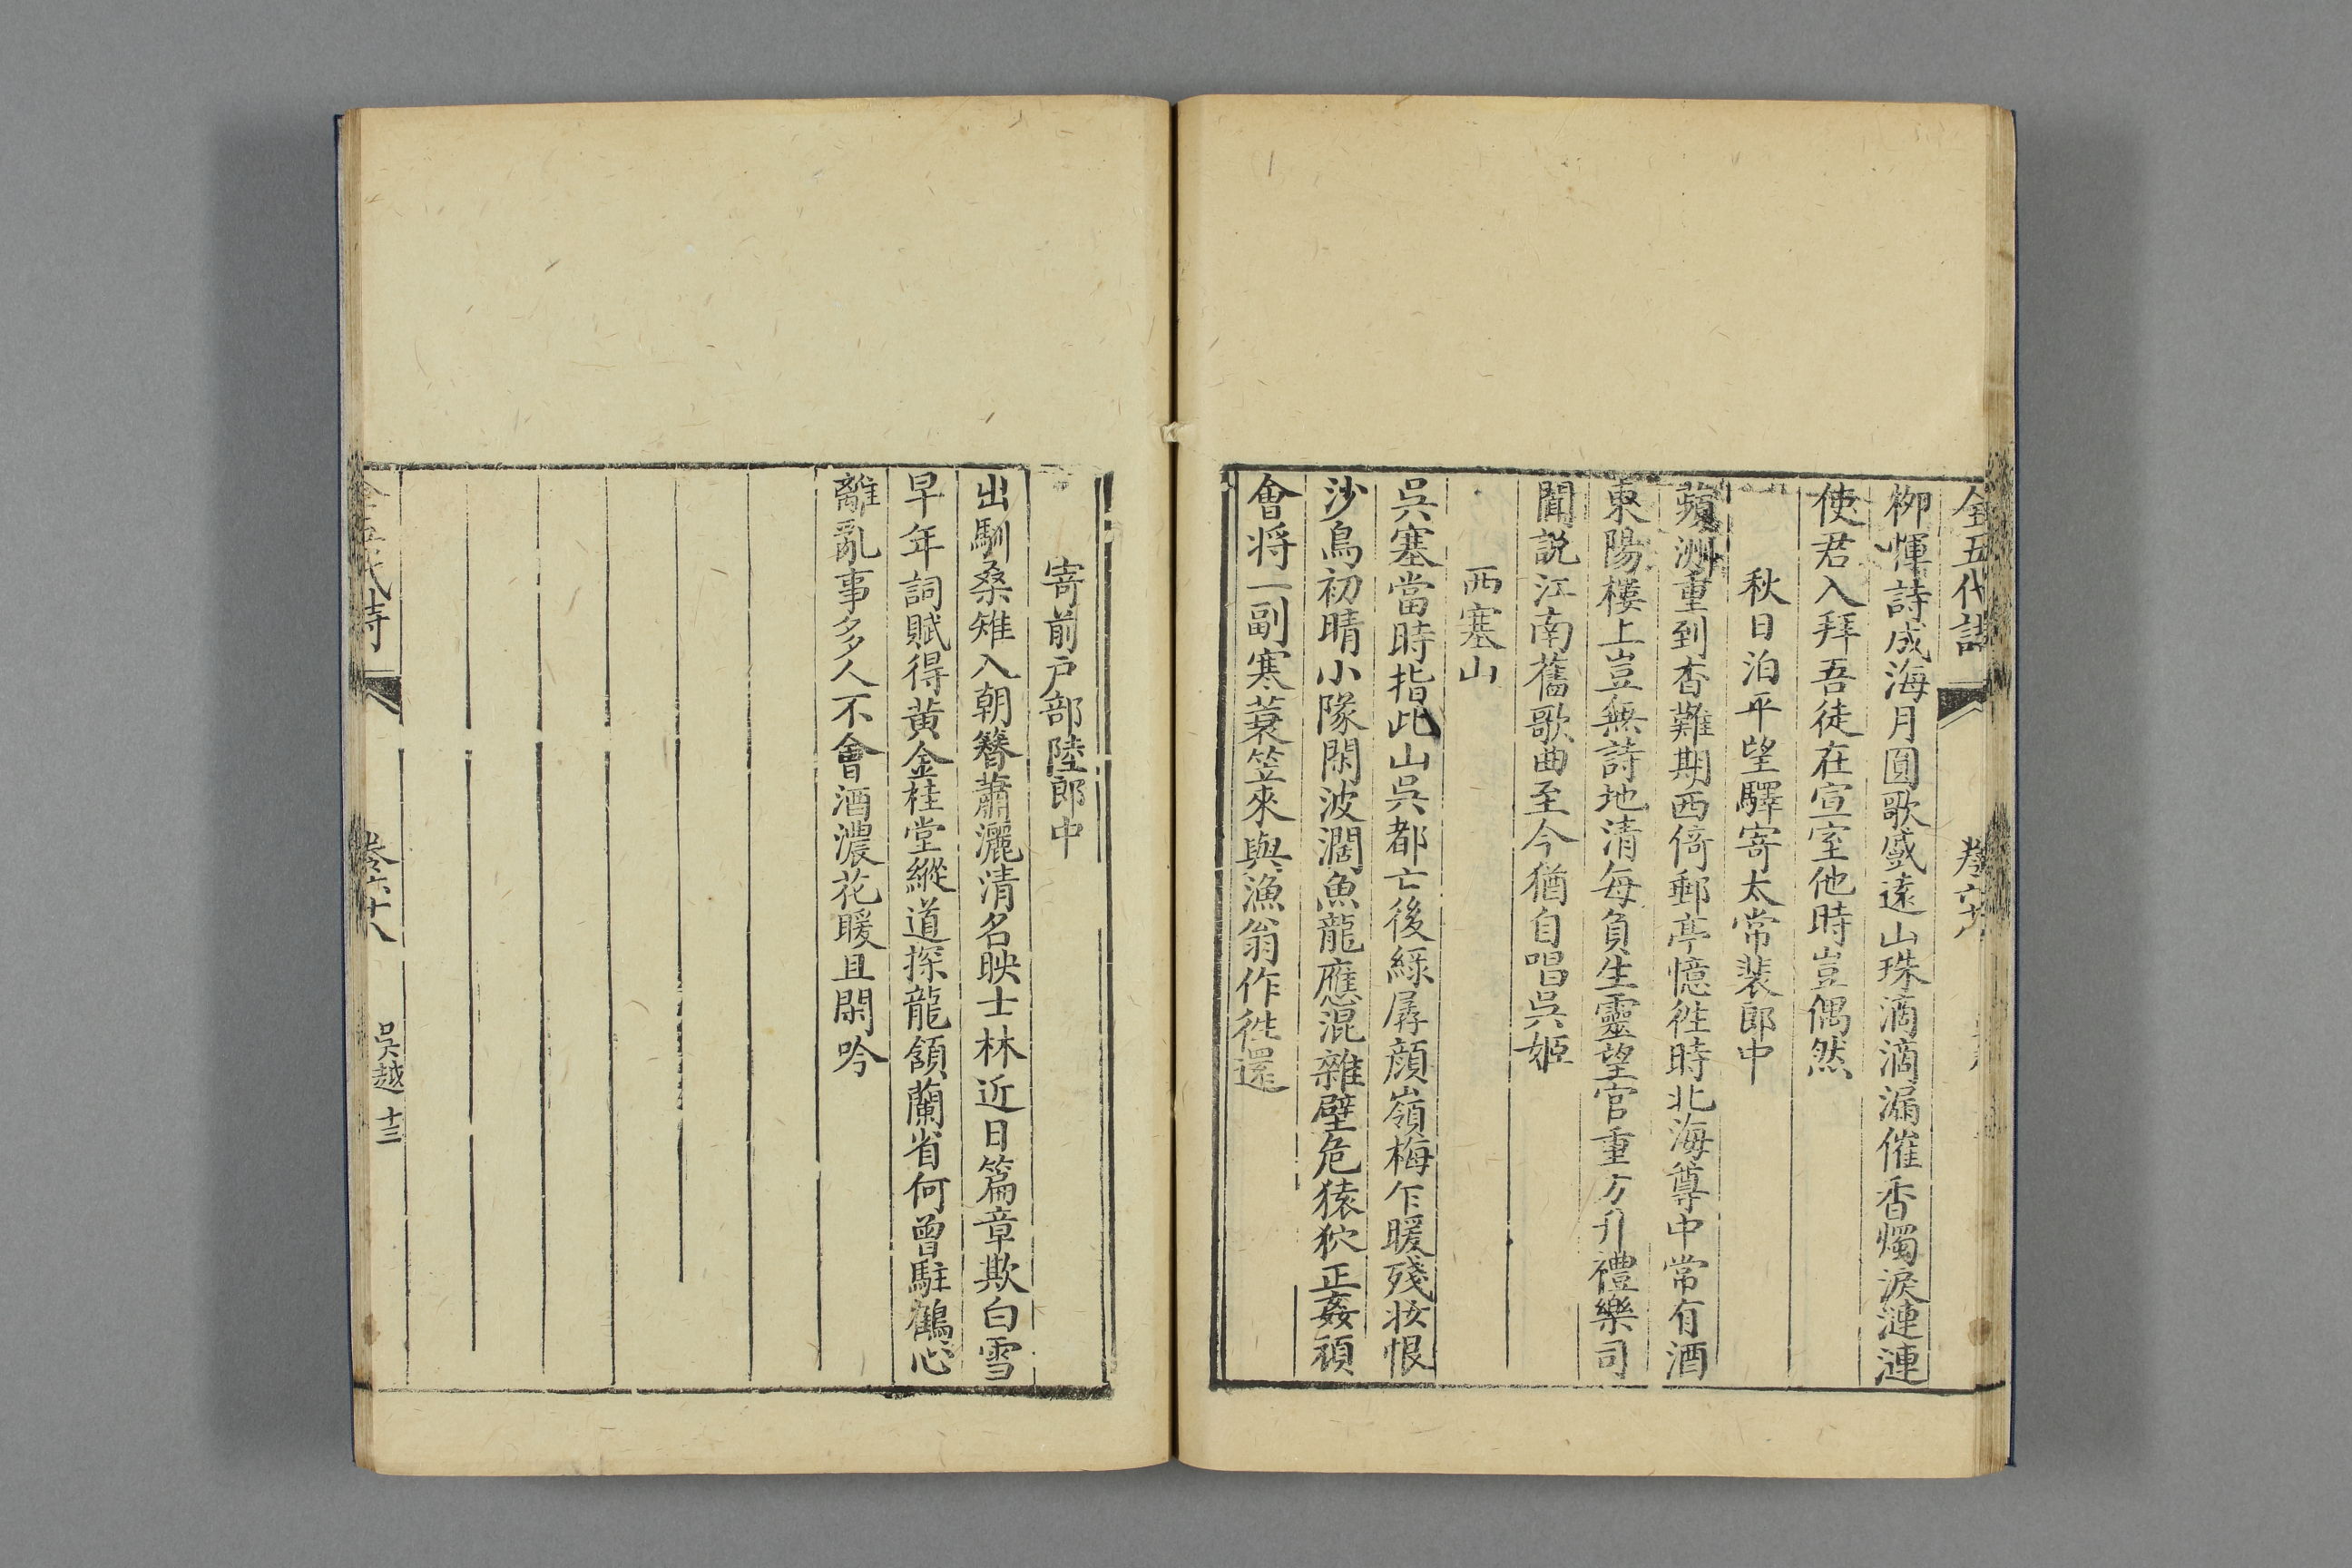 全五代詩
栁惲詩成海月圓歌盛遠山珠滴滴漏催香燭淚漣漣
使君入拜吾徒在宣室他時豈偶然
秋日泊平望驛寄太常裴郎中
蘋洲重到杳難期西倚郵亭憶徃時北海尊中常有酒
東陽樓上豈無詩地清每負生靈望官重方升禮樂司
聞説江南舊歌曲至今猶自唱吳姬
西塞山
吳塞當時指此山吳都亡後綠孱顔嶺梅乍暖殘妝恨
沙鳥初晴小隊閑波濶魚龍應混雜壁危猿狖正姦頑
會将一副寒蓑笠來與漁翁作徃還
寄前戶部陸郎中
出馴桑雉入朝簪蕭灑清名映士林近日篇章欺白雪
早年詞賦得黃金桂堂縱道探龍頷蘭省何曾駐鶴心
離亂事多人不會酒濃花暖且閑吟
全五代詩
卷六十八
吳越
十三